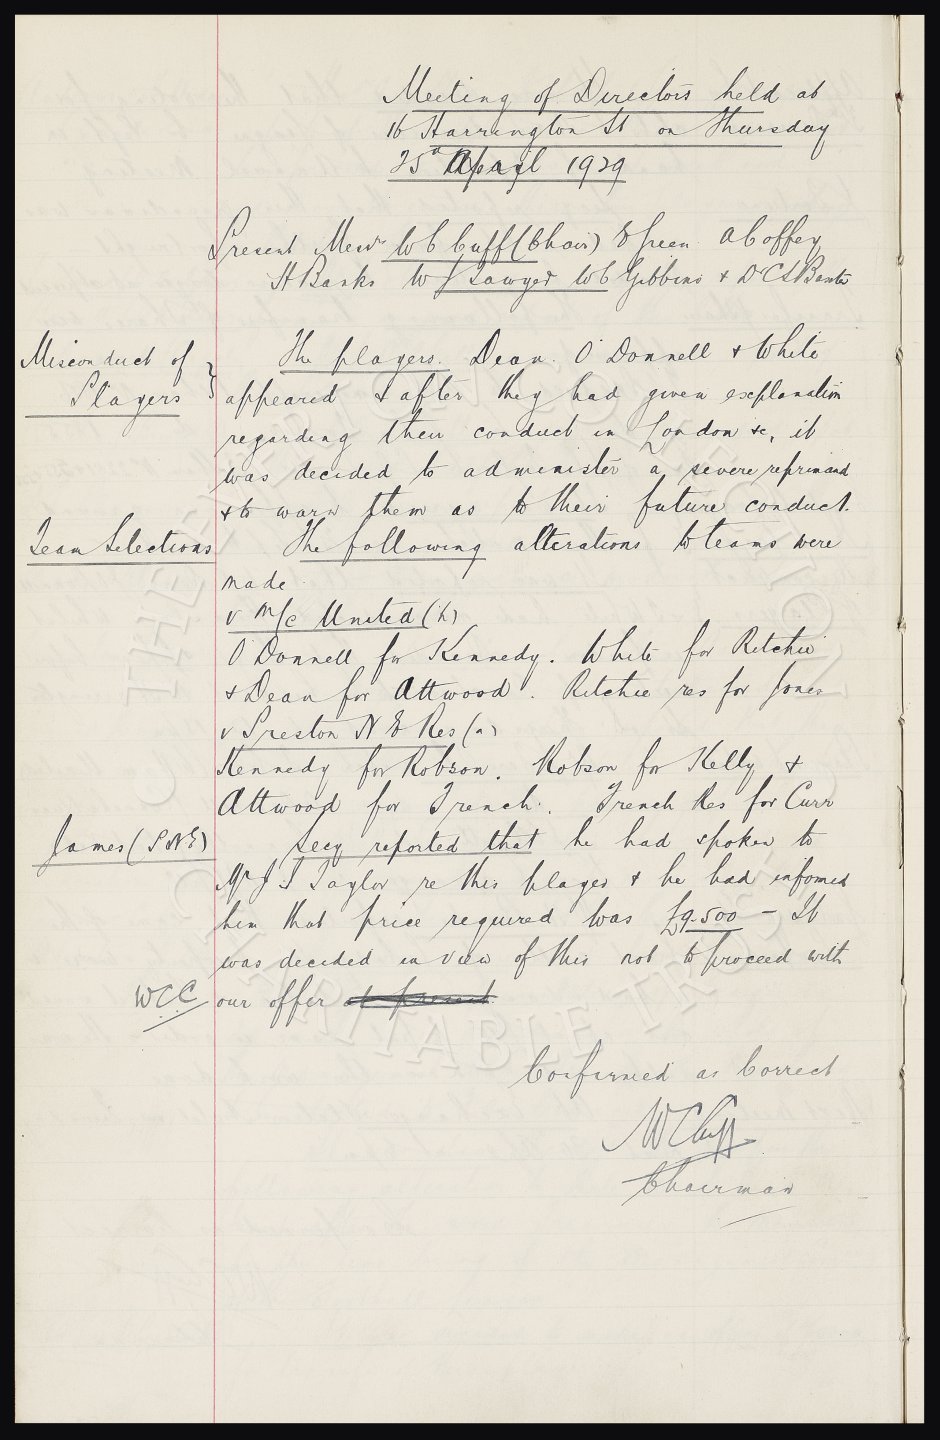 Meeting of Directors held at
16 Harrington St on Thursday
25th April 1929
Present Messrs W C Cuff (Chair) E Green A Coffey
H Banks W J Sawyer W C Gibbins & Dr C S Baxter
Misconduct of
Players
The players. Dean. O'Donnell & White
appeared & after they had given explanation
regarding their conduct in London &c, it
was decided to administer a severe reprimand
& to warn them as to their future conduct.
Team Selections
The following alterations to teams were
made
v M/c United (h)
O'Donnell for Kennedy. White for Ritchie
& Dean for Attwood. Ritchie res for Jones
v Preston N E Res (a)
Kennedy for Robson. Robson for Kelly &
Attwood for French. French Res for Curr
James (P N E)
Secy reported that he had spoken to
Mr J I Taylor re this player & he had informed
him that price required was £9.500 – It
was decided in view of this not to proceed with
WCC our offer at present
Confirmed as Correct
WCCuff
Chairman
THE EVERTON COLLECTION
CHARITABLE TRUST